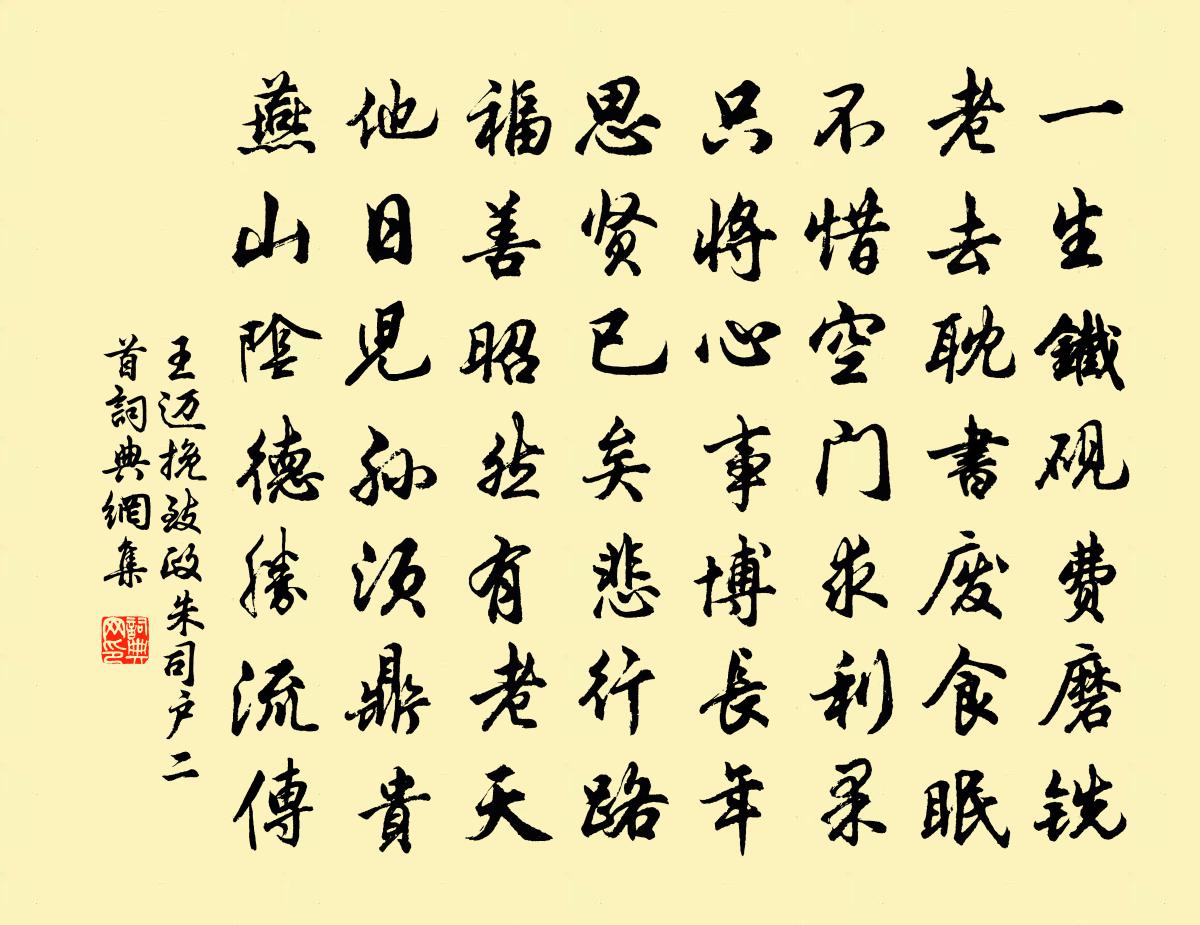 一生鐵砚费磨铣
老去耽書废食眠
不惜空门求利果
只將心事博長年
思贤已矣悲行路
福善昭然有老天
他日兒孙须鼎貴
燕山陰德勝流傳
王迈挽致政朱司户二
首詞典網集
詞典網印